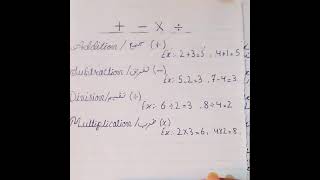 + - × ÷
Addition / جمع (+)
Ex: 2+3=5 , 4+1=5
Subtraction / تفریق (-)
Ex: 5-2=3 , 7-4=3
Division / تقسیم (÷)
Ex: 6÷2=3 , 8÷4=2
Multiplication / ضرب (x)
Ex: 2x3=6 , 4x2=8